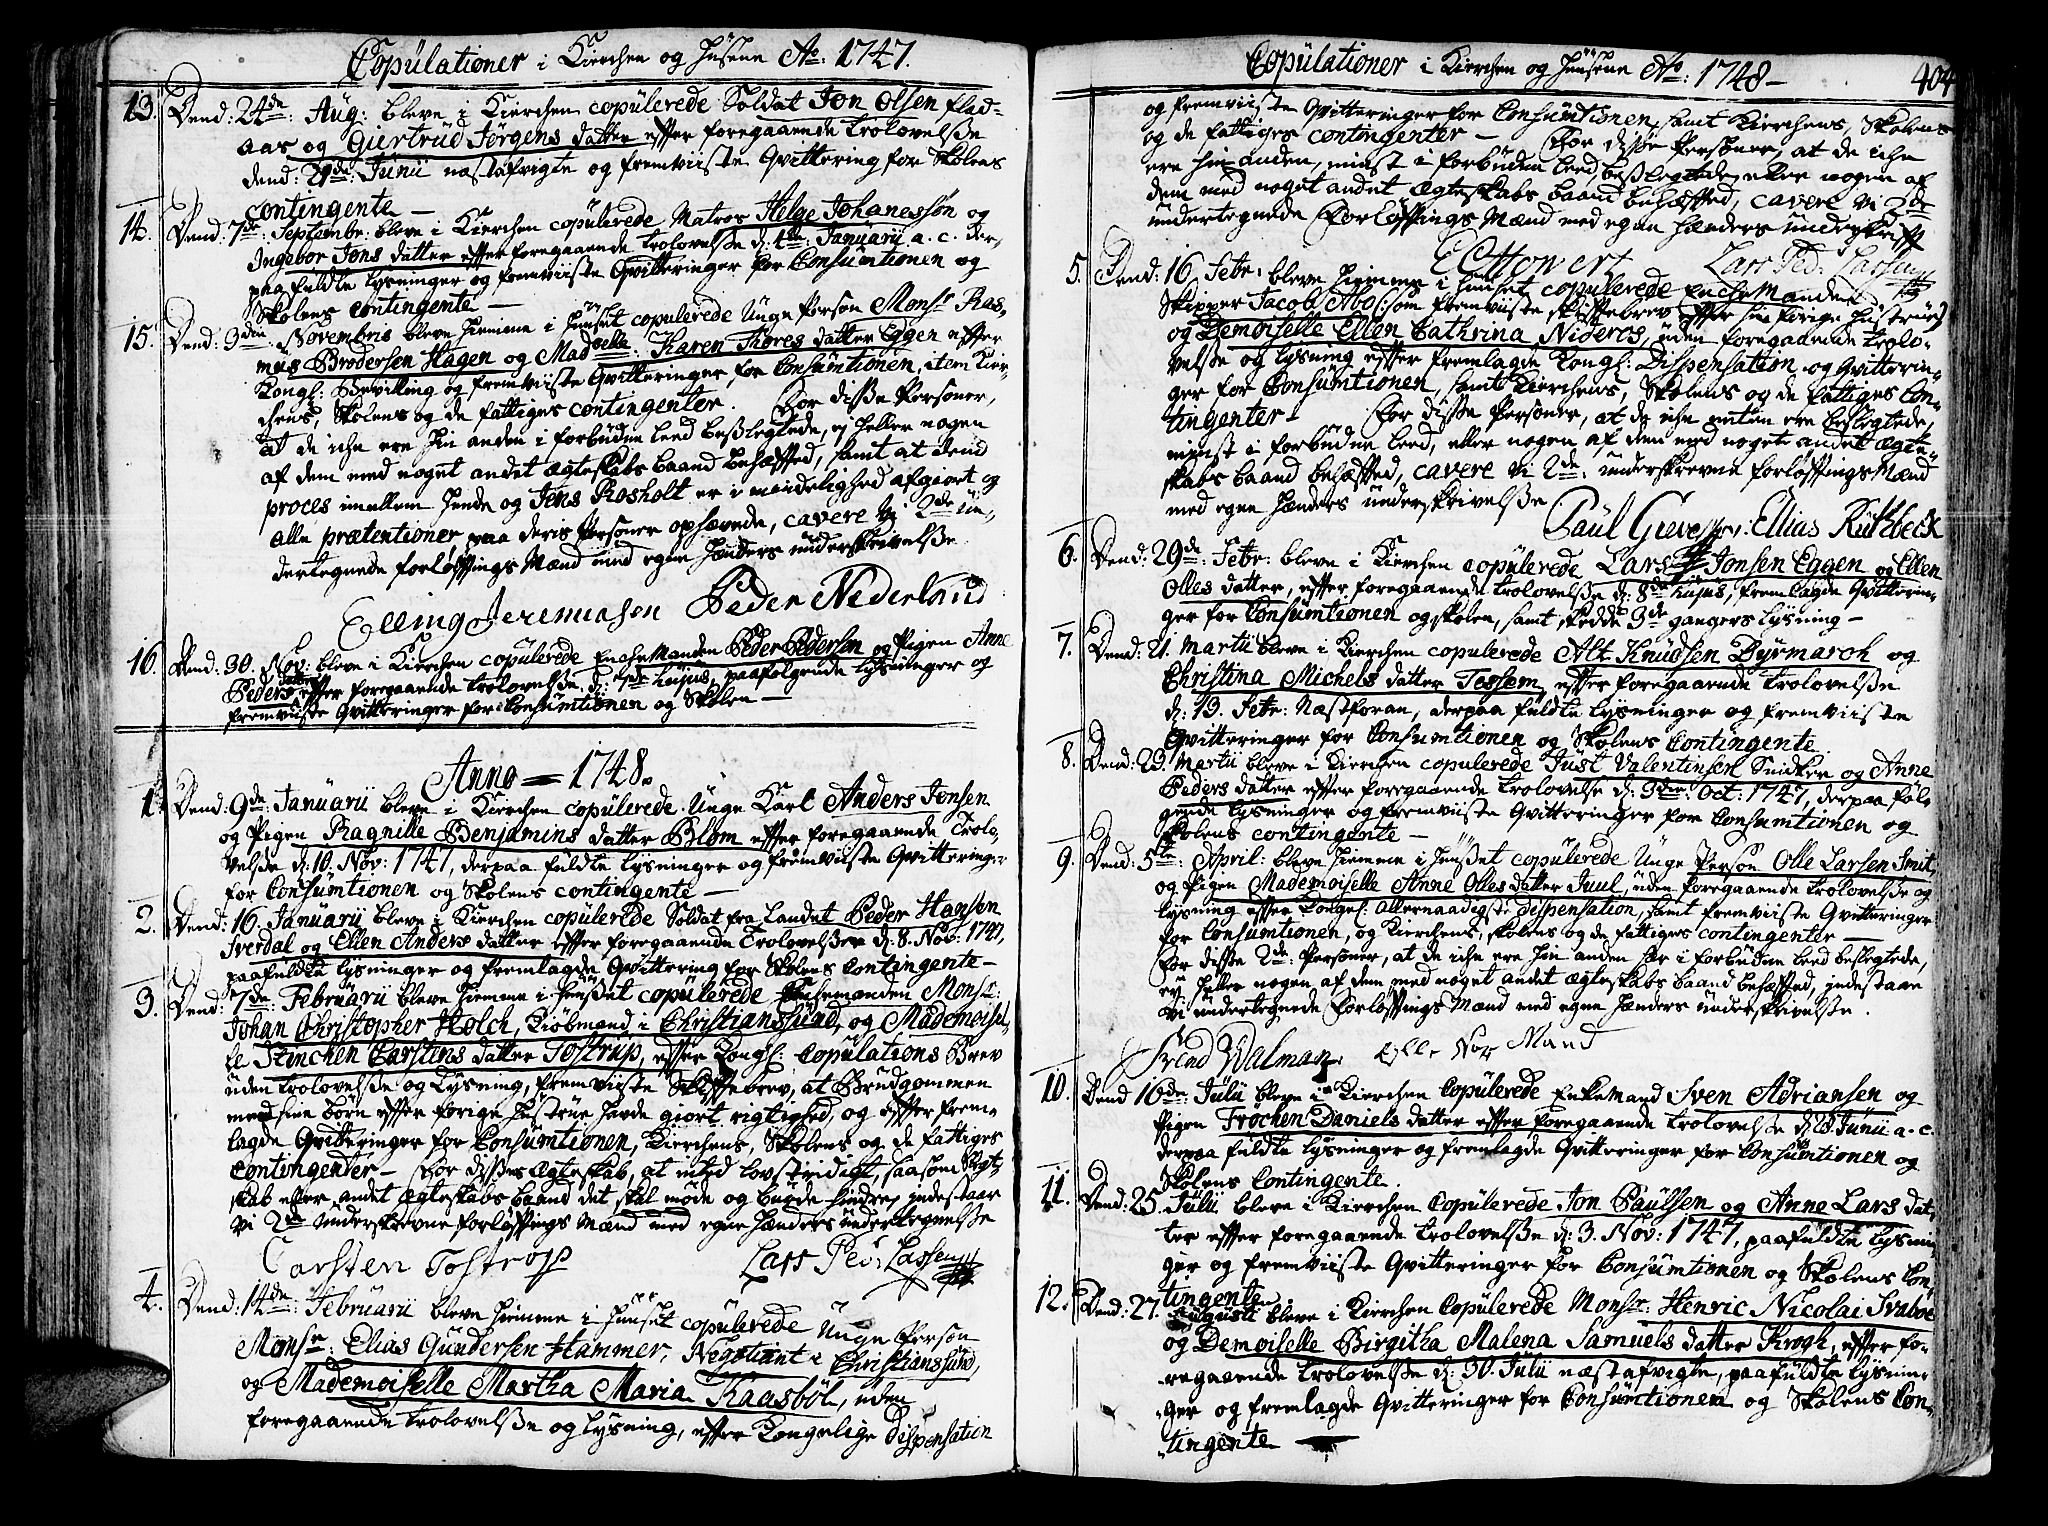 Copulationer i Kierchen og Huusene Ao: 1747.
13. Dend: 24de: Aug: bleve i Kierchen copulerede Soldat Jon Olsen Flad-
aas og Giertrud Jørgens datter effter foregaaende trolovelsse
dend: 29de: Junii næstafvigte og fremviiste Qvittering for Skolens
contingente —
14. Dend: 7de: Septembr: bleve i Kierchen copulerede Matros Helge Johanessøn og
Ingebor Jons datter effter foregaaende trolovelsse d: 4de: Januarii a. c. der-
paa fuldte lysninger og fremviiste Qvitteringer for Consumtionen og
Skolens contingente —
15. Dend: 3den: Novembris bleve hiemme i Huuset copulerede Unge Person Monsr Ras-
mus Brodersen Hagen og Madselle: Karen Tores datter Eggen effter
Kongl: Bevilling og fremviiste Qvitteringer for Consumtionen, item Kier-
chens, Skolens og de fattiges contingenter. For disse Personer,
at de iche ere hin anden i forbudne leed beslegtede, ej heller nogen
af dem med noget andet ægteskabs baand behæfted, samt at dend
proces imellem hende og Jens Rosholt er i mindelighed afgiort og
alle prætentioner paa deris Personer ophævede, cavere vi 2de un-
dertegnede forløffnings Mænd med egne Hænders underskrivelsse.
Elling Jeremiasøn Peder Nederlund
16. Dend: 30. Nov: bleve i Kierchen copulerede Enche Manden Peder Pedersen og Pigen Anne
Peders datter effter foregaaende trolovelsse d: 7de hujus, paafølgende lysninger og
fremviiste Qvitteringer for Consumtionen og Skolen —
Anno = 1748.
1. Dend: 9de: Januarii bleve i Kierchen copulerede Unge Karl Anders Jonsen
og Pigen Ragnille Benjamins datter Blom effter foregaaende Trolo-
velsse d: 10. Nov: 1747, derpaa fuldte lysninger og fremviiste Qvitteringer
for Consumtionen og Skolens contingente —
2. Dend: 16. Januarii bleve i Kierchen copulerede Soldat fra Landet Peder Hanson
Sverdal og Ellen Anders datter effter foregaaende Trolovelsse d: 8. Nov: 1747,
paafuldte lysninger og fremlagde Qvittering for Skolens Contingente —
3. Dend: 7de: Februarii bleve hiemme i Huusset copulerede Enchemanden Monsr:
Johan Christopher Holch, Kiøbmand i Christianssund, og Mademoisel-
le Stinchen Carstens datter Tostrup, effter Kongl: Copulations Brev
uden trolovelsse og Lysning, fremviiste Skifftebrev, at Brudgommen
med sine børn effter forige Hustrue havde giort rigtighed, og effter frem-
lagde Qvitteringer for Consumtionen, Kierchens, Skolens og de fattiges
Contingenter — For disses Ægteskab, at inted lovstridigt, saasom Slegt-
skab eller andet ægteskabs baand det skal møde og burde hindre, indestaar
vi 2de underskrevne forløffnings Mænd med egne Hænders undertegnelsse
Carsten Tostrop Lars Ped: Lassen
4. Dend: 14de: Februarii bleve hiemme i Huuset copulerede Unge Person
Monsr: Elias Gundersen Hammer, Negotiant i Christianssund,
og Mademoiselle Martha Maria Raasbøl, uden
foregaaende trolovelsse og lysning, effter Kongelige Dispensation
Copulationer i Kierchen og Huusene Ao: 1748 — 404
og fremviiste Qvitteringer for Consumtionen, samt Kierchens, Skolens
og de fattiges contingenter — For disse Personer, at de iche
ere hin anden, minst i forbuden leed besslegtede, eller nogen af
dem med noget andet ægteskabs baand behæfted, cavere vi 2de
undertegnede Forløffnings Mænd med egne hænders underskrifft
E C Howert Lars Ped: Lassen
5. Dend: 16. Febr: bleve hiemme i Huuset copulerede Enche Manden
Skipper Jacob Abo (: som fremviiste skifftebrev effter sin forige hustrue:)
og Demoiselle Ellen Cathrina Nideros, uden foregaaende trolo-
velsse og lysning effter fremlagde Kongl: Dispensation og Qvitterin-
ger for Consumtionen, samt Kierchens, Skolens og de fattiges Con-
tingenter — For disse Personer, at de iche enten ere beslegtede,
minst i forbudne leed, eller nogen af dem med noget andet ægte-
skabs baand behæfted, cavere vi 2de: underskrevne forløffnings Mænd
med egne Hænders underskrivelsse
Ellias Rützbeck
6. Dend: 29de: Febr: bleve i Kierchen copulerede Lars Jonsen Eggen og Ellen
Olles datter, effter foregaaende trolovelsse d: 8de hujus, fremlagde Qvitterin-
ger for Consumtionen og skolen, samt skedde 3de gangers lysning —
7. Dend: 21. Martii bleve i Kierchen copulerede Alt Knudsen Dyrmaroh og
Christina Michels datter Tossem, effter foregaaende trolovelsse
d: 19. Febr: Næstforan, derpaa fuldte lysninger og fremviiste
Qvitteringer for Consumtionen og Skolens Contingente.
8. Dend: 29. Martii bleve i Kierchen copulerede Just Valentinsen Snidker og Anne
Peders datter effter foregaaende trolovelse d: 3die: Oct: 1747, derpaa føl-
gende lysninger og fremviiste Qvitteringer for Consumtionen og
Skolens contingente —
9. Dend: 5te: April: bleve hiemme i Huusset copulerede Unge Person Olle Larsen Smit,
og Pigen Mademoiselle Anne Olles datter Juul, uden foregaaende trolovelsse og
lysning effter Kongel: allernaadigste dispensation, samt fremviiste Qvitteringer
for Consumtionen, og Kierchens, skolens og de fattiges contingenter —
For disse 2de: Personer, at de iche ere hin anden saa i forbudne leed beslegtede,
ey heller nogen af dem med noget andet ægteskabs baand behæfted, indestaar
vi undertegnede Forløffnings Mænd med egne Hænders underskrivelsse.
Svend Walman Eylle Nor Mand
10. Dend 16de: Julii bleve i Kierchen Copulerede Enke Mand Sven Adriansen og
Pigen Trochen Daniels datter effter foregaaende trolovelsse d: 15 Junii a. c.
derpaa fuldte lysninger og fremlagde Qvitteringer for Consumtionen og
Skolens Contingente.
11. Dend: 25. Julii bleve i Kierchen Copulerede Jon Paulsen og Anne Lars dat-
ter effter foregaaende trolovelsse d: 3. Nov: 1747, paafuldte lysnin-
ger og fremviiste Qvitteringer for Consumtionen og Skolens Con-
tingente.
12. Dend: 27. Augusti bleve i Kierchen Copulerede Monsr: Henric Nicolai Svaboe
og Demoiselle Birgitha Malena Samuels datter Krogh, effter fo-
regaaende trolovelsse d: 30. Julii næst afvigte, paafuldte lysnin-
ger og fremlagde Qvitteringer for Consumtionen og Skolens Con-
tingente —